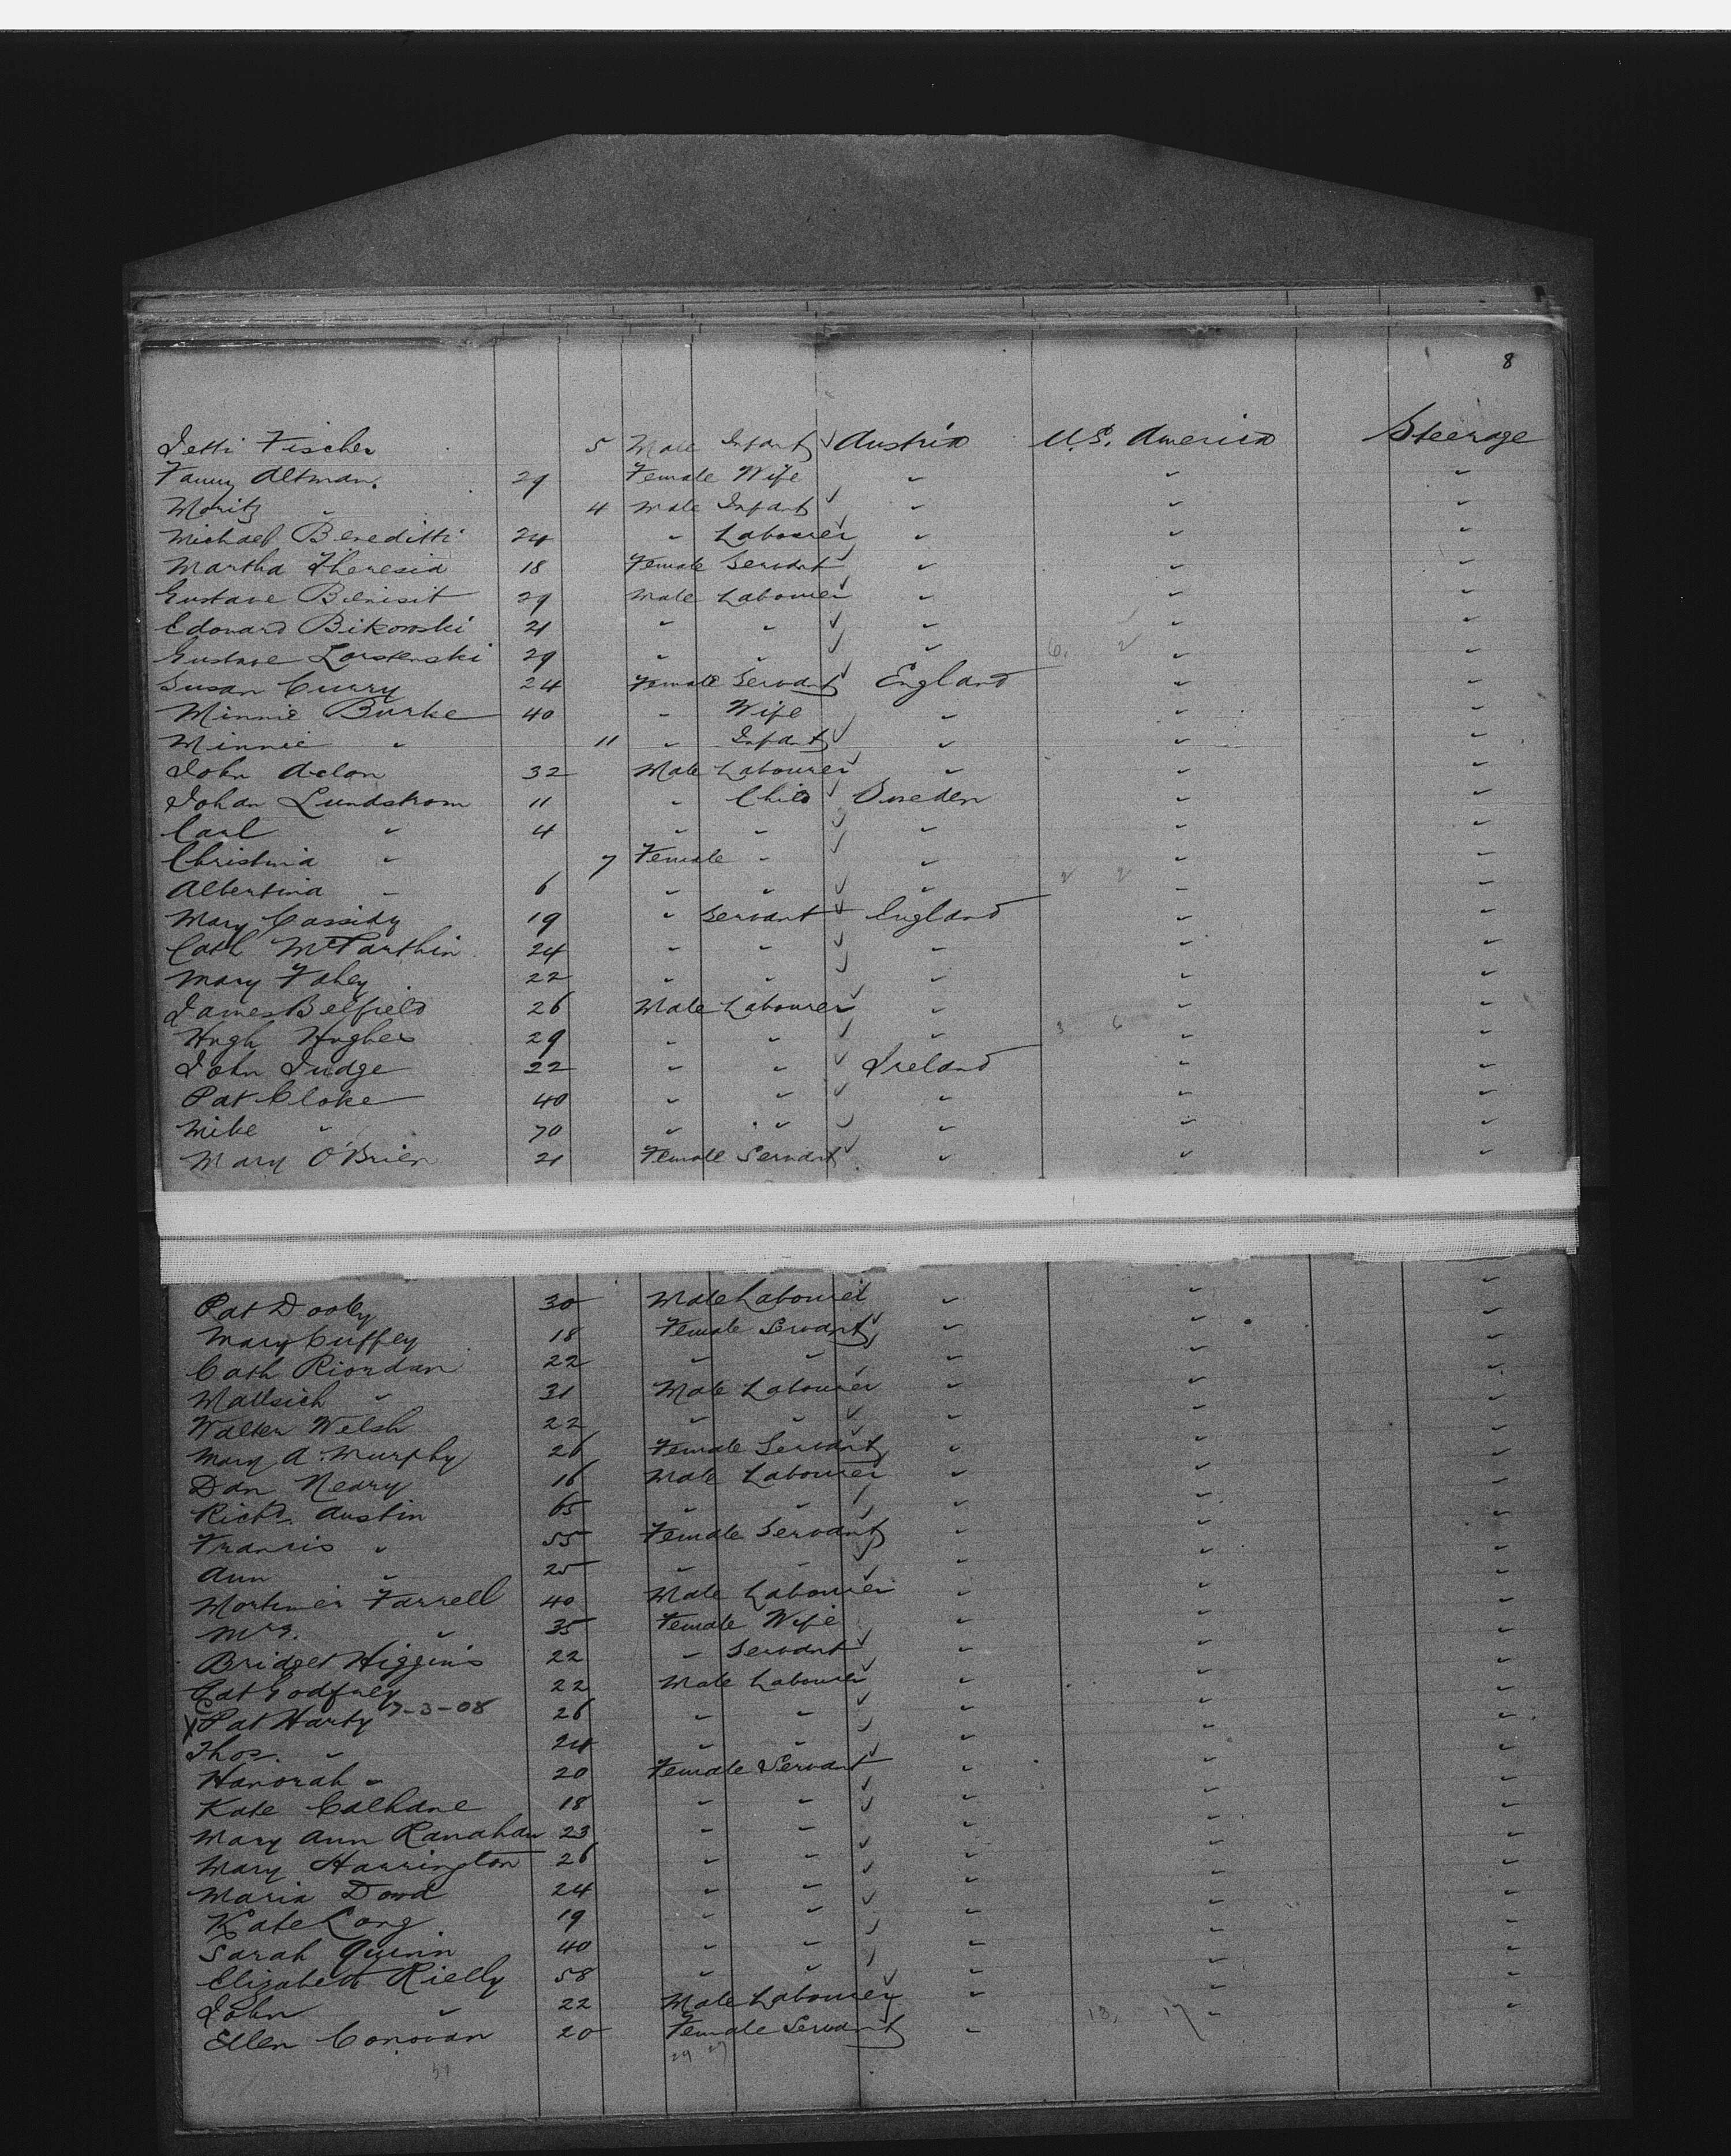 8
Jetti Fischer 5 Male Infant ✓ Austria U.S. America Steerage
Fanny Altman. 29 Female Wife " " "
Moritz " 4 Male Infant ✓ " " "
Michael Beneditti 24 " Labourer ✓ " " "
Martha Theresia 18 Female Servant ✓ " " "
Gustave Bilnisit 29 Male Labourer ✓ " " "
Edouard Bikowski 21 " " ✓ " " "
Gustave 29 " " ✓ " 6. 2 " "
Susan Curry 24 Female Servant ✓ England " "
Minnie Burke 40 " Wife " " "
Minnie " 11 " Infant ✓ " " "
John 32 Male Labourer ✓ " " "
Johan Lundstrom 11 " Child ✓ Sweden " "
Carl " 4 " " ✓ " " "
Christina " 7 Female " ✓ " " "
Albertina " 6 " " ✓ " 2 2 " "
Mary Cassidy 19 " Servant ✓ England " "
Cath 24 " " ✓ " " "
Mary Fahey 22 " " ✓ " " "
James Belfield 26 Male Labourer ✓ " " "
Hugh Hughes 29 " " ✓ " 3 6 " "
John Judge 22 " " ✓ Ireland " "
Pat Cloke 40 " " ✓ " " "
Mike " 70 " " ✓ " " "
Mary O'Brien 21 Female Servant ✓ " " "
Pat Dooley 30 Male Labourer " " "
Mary Cuffey 18 Female Servant ✓ " " "
Cath Riordan 22 " " ✓ " " "
" 31 Male Labourer " " "
Walter Welsh 22 " " ✓ " " "
Mary A. Murphy 26 Female Servant " " "
Dan Neary 16 Male Labourer " " "
Richd. Austin 65 " " ✓ " " "
Francis " 55 Female Servant " " "
Ann " 25 " " ✓ " " "
Mortimer Farrell 40 Male Labourer " " "
Mrs. " 35 Female Wife " " "
Bridget Higgins 22 " Servant ✓ " " "
Pat Godfrey 22 Male Labourer ✓ " " "
X Pat Harty 7-3-08 26 " " ✓ " " "
Thos. " 24 " " ✓ " " "
Hanorah " 20 Female Servant ✓ " " "
Kate Calhane 18 " " ✓ " " "
Mary Ann Ranahan 23 " " ✓ " " "
Mary Harrington 26 " " ✓ " " "
Maria Dowd 24 " " ✓ " " "
Kate Long 19 " " ✓ " " "
Sarah Quinn 40 " " ✓ " " "
Elizabeth Rielly 58 " " ✓ " " "
John " 22 Male Labourer ✓ " " "
Ellen Conovan 20 Female Servant " 13, 17 " "
51 29 27